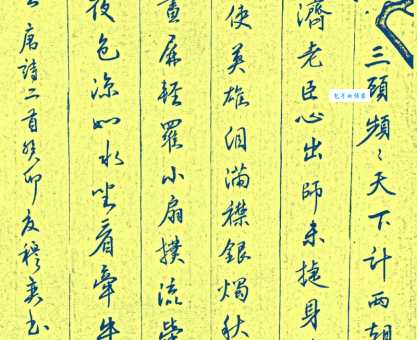 三顧頻々天下计两朝
濟老臣心出師未捷身
使英雄泪滿襟銀燭秋
畫屏輕羅小扇撲流螢
夜色凉如水坐看牽牛
唐詩二首癸卯夏穆奕书